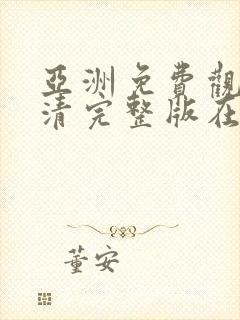 亞洲免費觀
清完整版在
董安